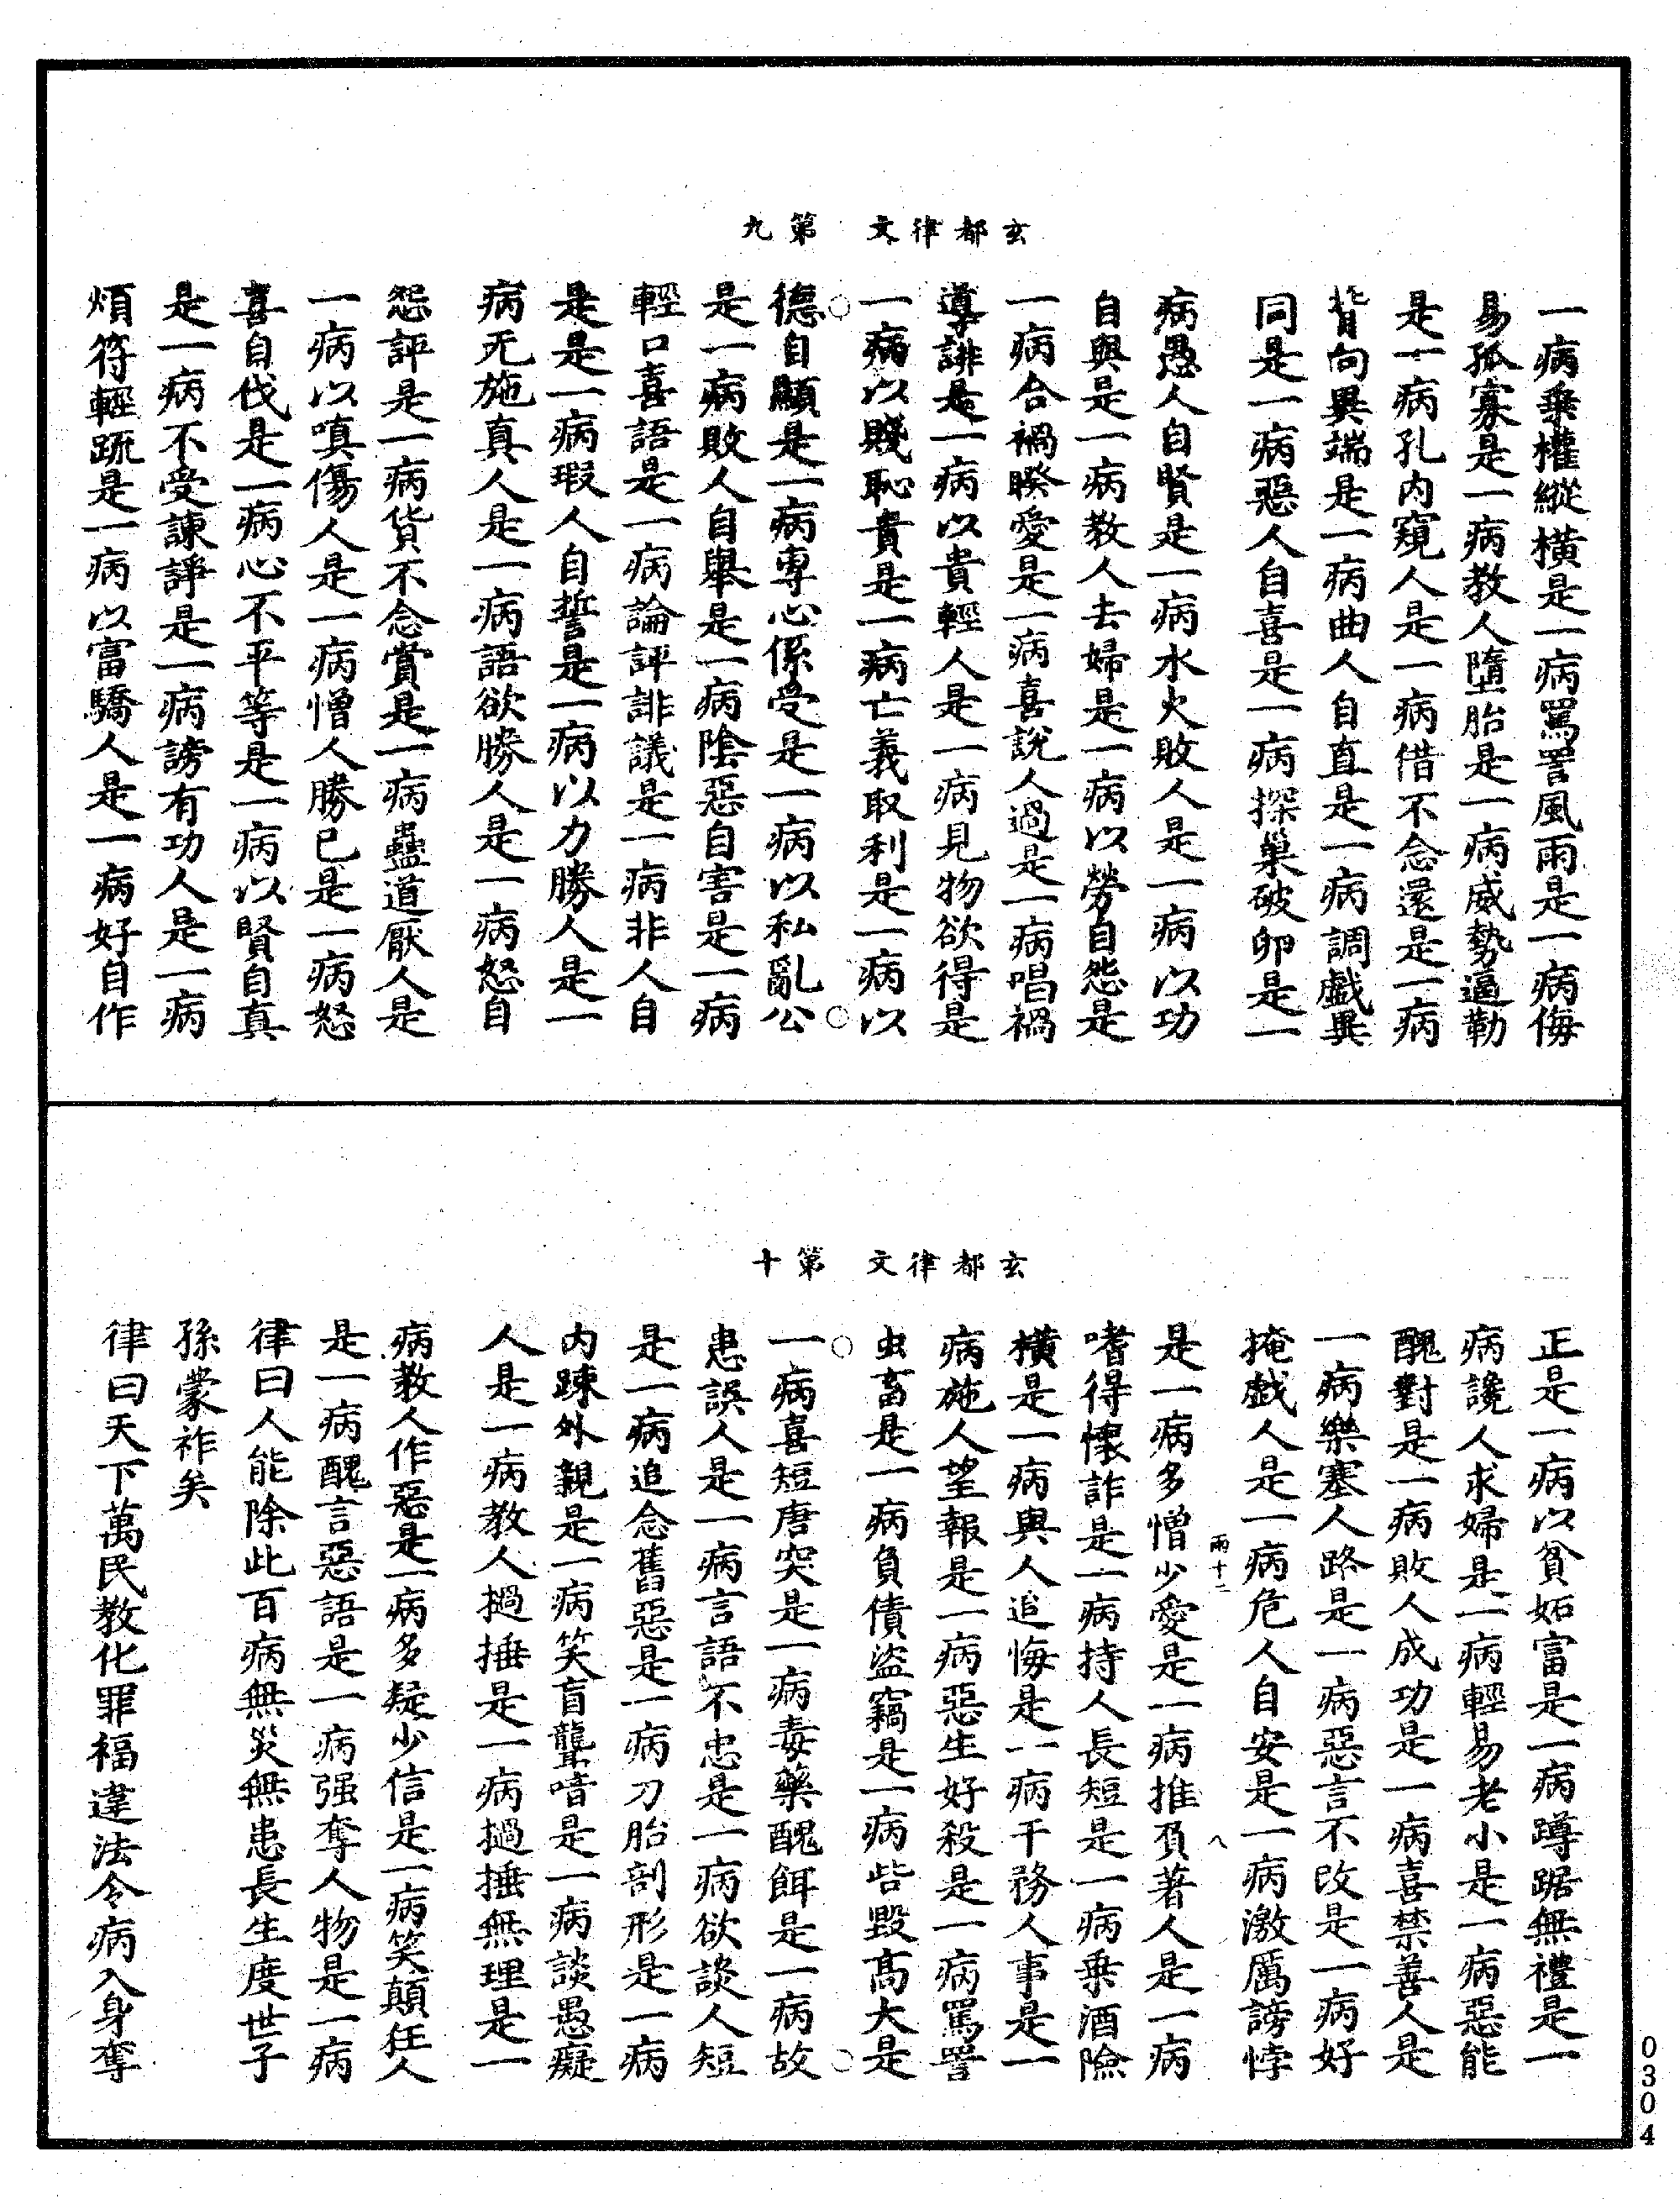 玄都律文　第九
一病乗權縱橫是一病罵詈風雨是一病侮
易孤寡是一病教人墮胎是一病威勢逼勒
是一病孔內窺人是一病借不念還是一病
背向異端是一病曲人自直是一病調戲異
同是一病惡人自喜是一病探巢破卵是一
病愚人自賢是一病水火敗人是一病以功
自與是一病教人去婦是一病以勞自怨是
一病合禍睽愛是一病喜說人過是一病唱禍
導誹是一病以貴輕人是一病見物欲得是
一病以賤恥貴是一病亡義取利是一病以
德自顯是一病專心係受是一病以私亂公
是一病敗人自舉是一病陰惡自害是一病
輕口喜語是一病論評誹議是一病非人自
是是一病瑕人自誓是一病以力勝人是一
病无施真人是一病語欲勝人是一病怒自
怨評是一病貨不念賞是一病蠱道厭人是
一病以嗔傷人是一病憎人勝已是一病怒
喜自伐是一病心不平等是一病以賢自真
是一病不受諫諍是一病謗有功人是一病
煩苻輕䟽是一病以富驕人是一病好自作
玄都律文　第十
正是一病以貧妬富是一病蹲踞無禮是一
病讒人求婦是一病輕易老小是一病惡能
醜對是一病敗人成功是一病喜禁善人是
一病樂塞人路是一病惡言不改是一病好
掩戯人是一病危人自安是一病激厲謗悖
雨十二　八
是一病多憎少愛是一病推頁著人是一病
嗜得懷詐是一病持人長短是一病乗酒險
橫是一病與人追悔是一病干務人事是一
病施人望報是一病惡生好殺是一病罵詈
虫畜是一病負債盜竊是一病呰毀高大是
一病喜短唐突是一病毒藥醜餌是一病故
恚誤人是一病言語不忠是一病欲談人短
是一病追念舊惡是一病刀胎剖形是一病
內踈外親是一病笑盲聾喑是一病談愚癡
人是一病教人撾捶是一病撾捶無理是一
病教人作惡是一病多疑少信是一病笑顛狂人
是一病醜言惡語是一病强奪人物是一病
律曰人能除此百病無災無患長生度世子
孫蒙祚矣
律曰天下萬民教化罪福違法令病入身奪
0304